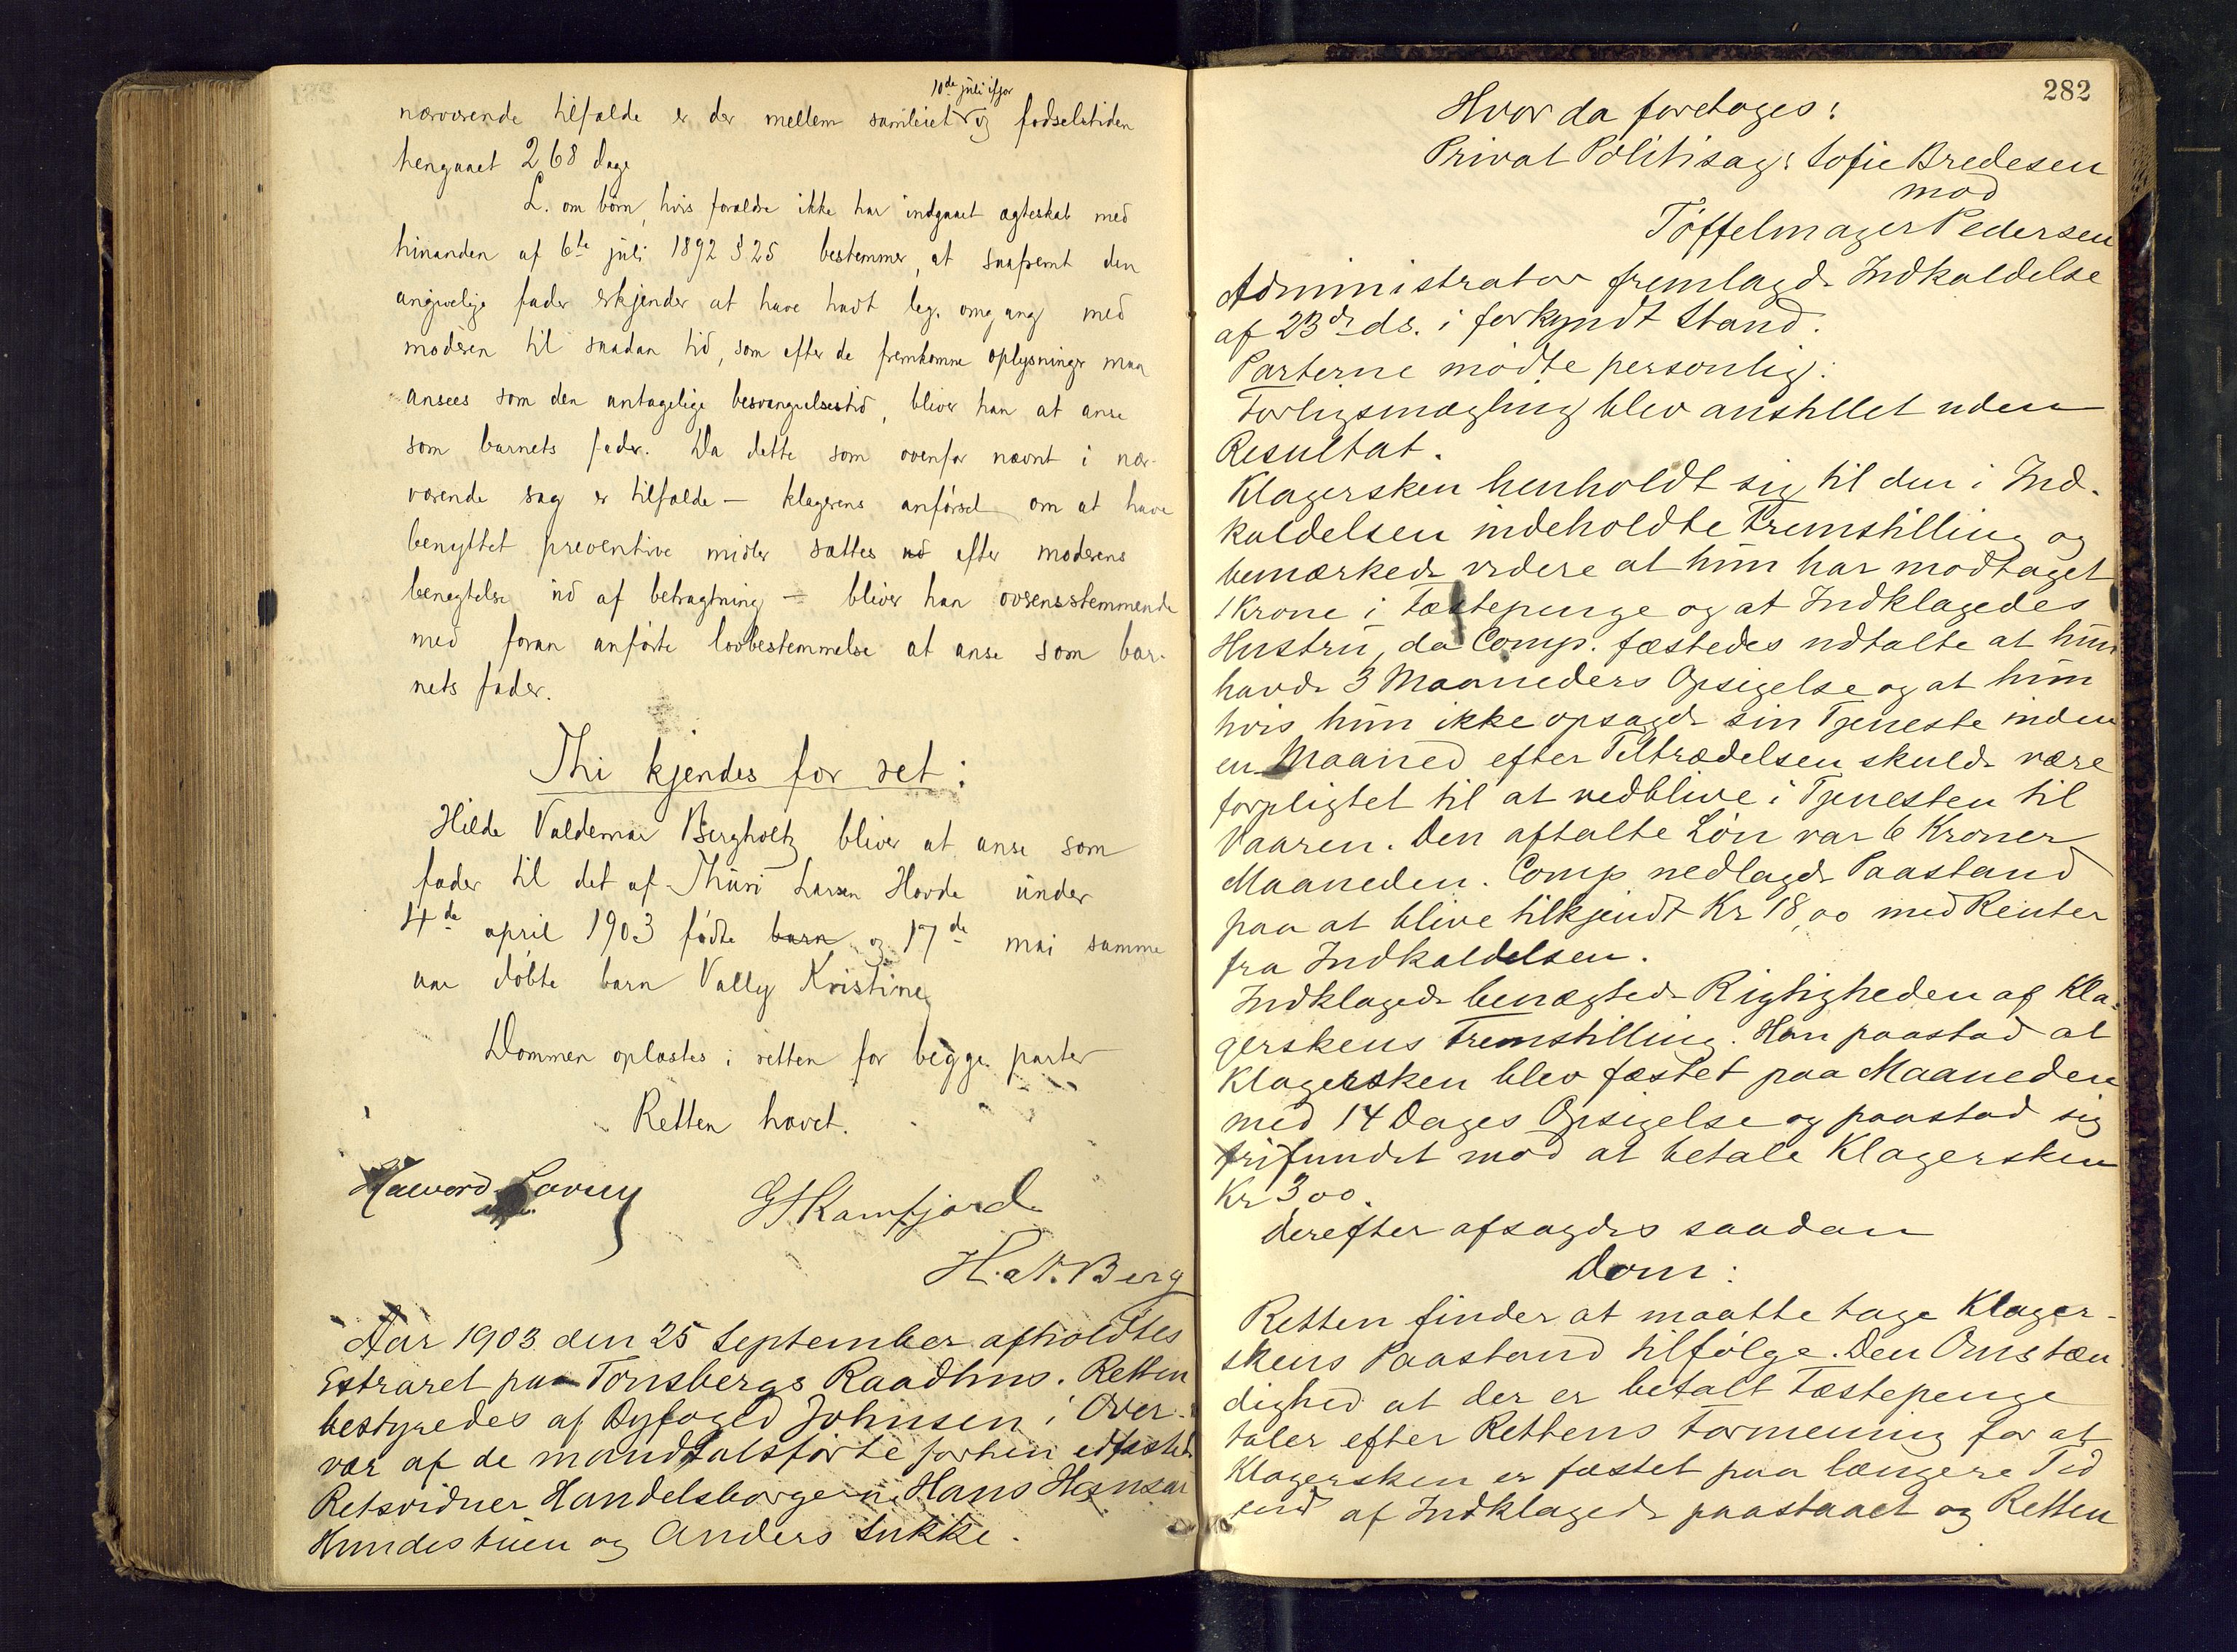 10de juli ifjor
nærværende tilfælde er der mellem samleiet og fødselstiden
hengaaet 268 dage
L. om børn, hvis forældre ikke har indgaaet ægteskab med
hinanden af 6te juli 1892 § 25 bestemmer, at saafremt den
angivelige fader erkjender at have havt leg. omgang med
moderen til saadan tid, som efter de fremkomne oplysninger maa
ansees som den antagelige besvangrelsestid, bliver han at anse
som barnets fader. Da dette som ovenfor nævnt i nær-
værende sag er tilfælde – klagerens anførsel om at have
benyttet preventive midler sættes ud efter moderens
benegtelse ud af betragtning – bliver han overensstemmende
med foran anførte lovbestemmelse at anse som bar-
nets fader.
Thi kjendes for ret:
Hilde Valdemar Bergholtz bliver at anse som
fader til det af Thuri Larsen Hovde under
4de april 1903 fødte barn og 17de mai samme
aar døbte barn Vally Kristine
Dommen oplæstes i retten for begge parter
Retten hævet.
G Kamfjord
H. A. Berg
Aar 1903 den 25 September afholdtes
Extraret paa Tønsbergs Raadhus. Retten
bestyredes af Byfoged Johnsen i Over-
vær af de mandtalsførte forhen edfæsted
Retsvidner Handelsborgerne Hans Hansen
Hundestuen og Anders Sukke.
282
Hvor da foretoges:
Privat Politisag: Sofie Bredesen
mod
Tøffelmager Pedersen
Administrator fremlagde Indkaldelse
af 23de ds. i forkyndt Stand.
Parterne mødte personlig.
Forligsmægling blev anstillet uden
Resultat.
Klagersken henholdt sig til den i Ind-
kaldelsen indeholdte Fremstilling og
bemærkede videre at hun har modtaget
1 Krone i Fæstepenge og at Indklagedes
Hustru, da Comp. fæstedes udtalte at hun
havde 3 Maaneders Opsigelse og at hun
hvis hun ikke opsagde sin Tjeneste inden
en Maaned efter Tiltrædelsen skulde være
forpligtet til at vedblive i Tjenesten til
Vaaren. Den aftalte Løn var 6 Kroner
Maaneden. Comp nedlagde Paastand
paa at blive tilkjendt Kr 18,00 med Renter
fra Indkaldelsen.
Indklagede benægtede Rigtigheden af Kla-
gerskens Fremstilling. Han paastod at
Klagersken blev fæstet paa Maaneden
med 14 Dages Opsigelse og paastod sig
frifundet mod at betale Klagersken
Kr 3 00.
Derefter afsagdes saadan
Dom:
Retten finder at maatte tage Klager-
skens Paastand tilfølge. Den Omstæn
dighed at der er betalt Fæstepenge
taler efter Rettens Formening for at
Klagersken er fæstet paa længere Tid
end af Indklagede paastaaet og Retten